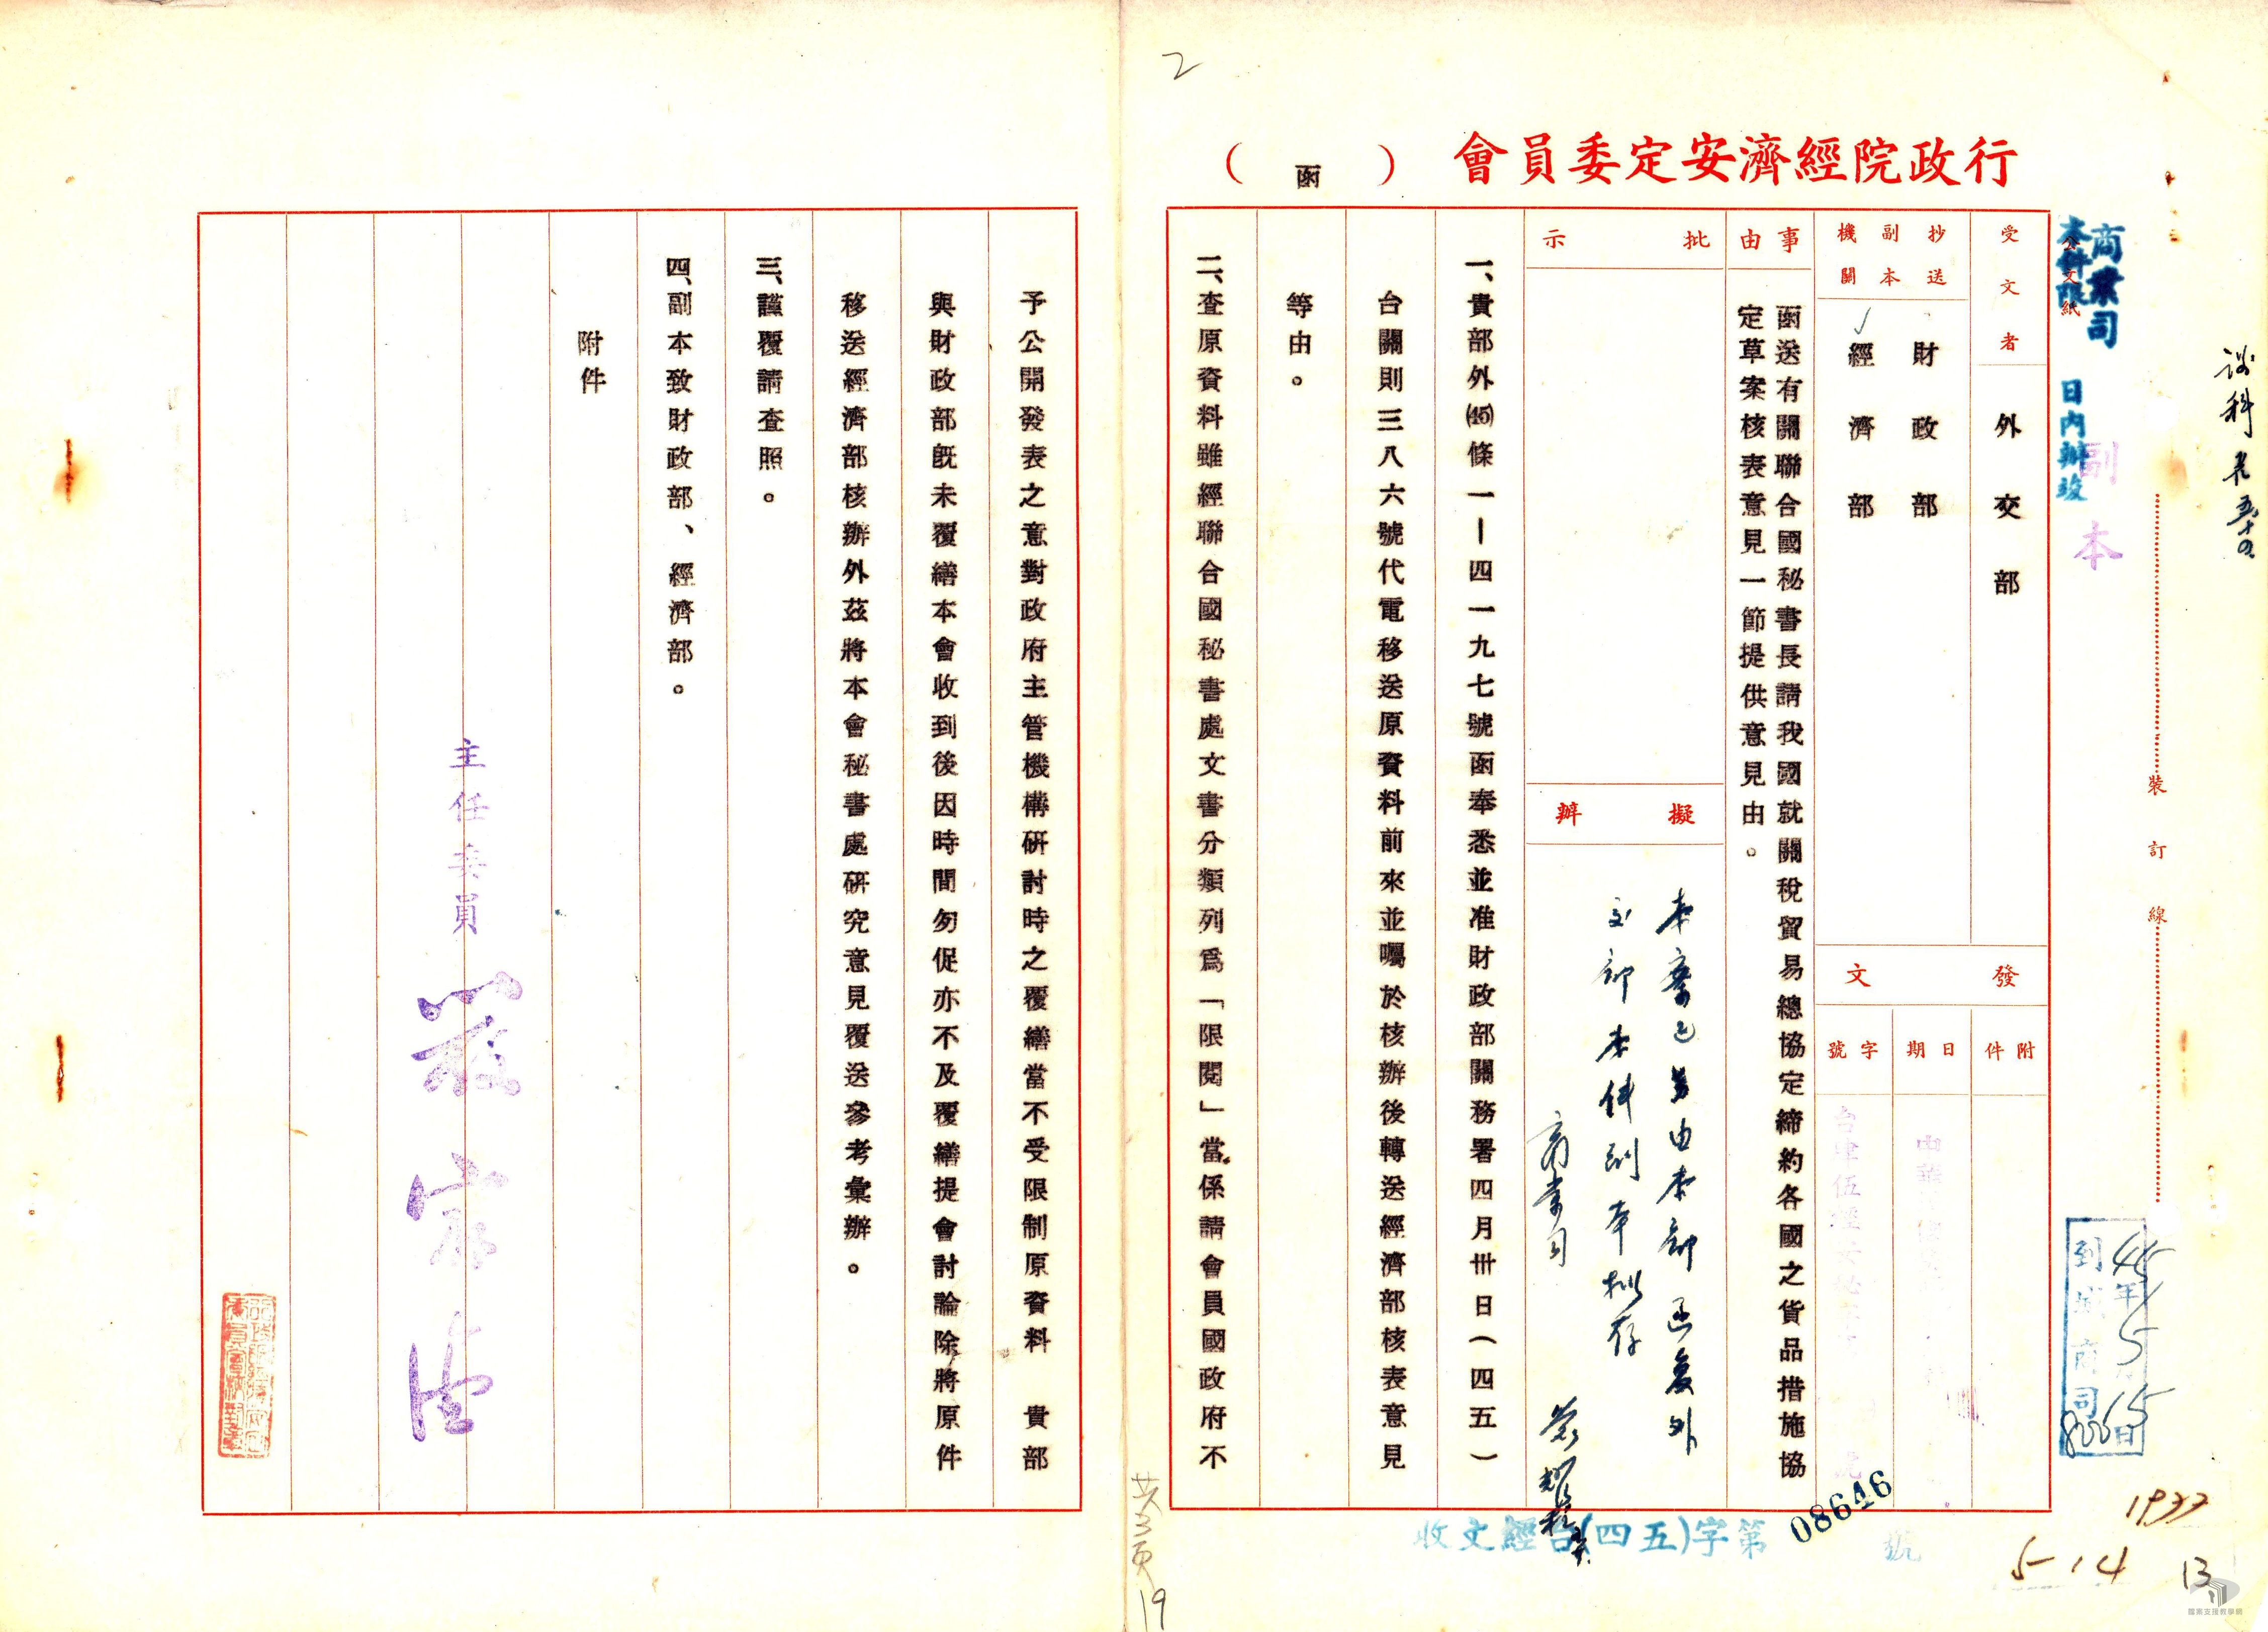 行政院經濟安定委員會（函）
商業司
本件限　日內辦竣
公文紙
副本
裝訂線
受文者
外交部
抄送副本機關
財政部
經濟部
發文
附件
日期
字號
事由
函送有關聯合國秘書長請我國就關稅貿易總協定締約各國之貨品措施協
定草案核表意見一節提供意見由。
批示
擬辦
本案已另由本部函復外
交部本件副本擬存
商業司
一、貴部外(45)條一—四一九七號函奉悉並准財政部關務署四月卅日（四五）
台關則三八六號代電移送原資料前來並囑於核辦後轉送經濟部核表意見
等由。
二、查原資料雖經聯合國秘書處文書分類列爲「限閱」當係請會員國政府不
予公開發表之意對政府主管機構研討時之覆繕當不受限制原資料　貴部
與財政部既未覆繕本會收到後因時間匆促亦不及覆繕提會討論除將原件
移送經濟部核辦外茲將本會秘書處研究意見覆送參考彙辦。
三、謹覆請查照。
四、副本致財政部、經濟部。
附件
主任委員
到達商司
45年5月15日
收文經台(四五)字第08646號
1933
5-14
13
19
2